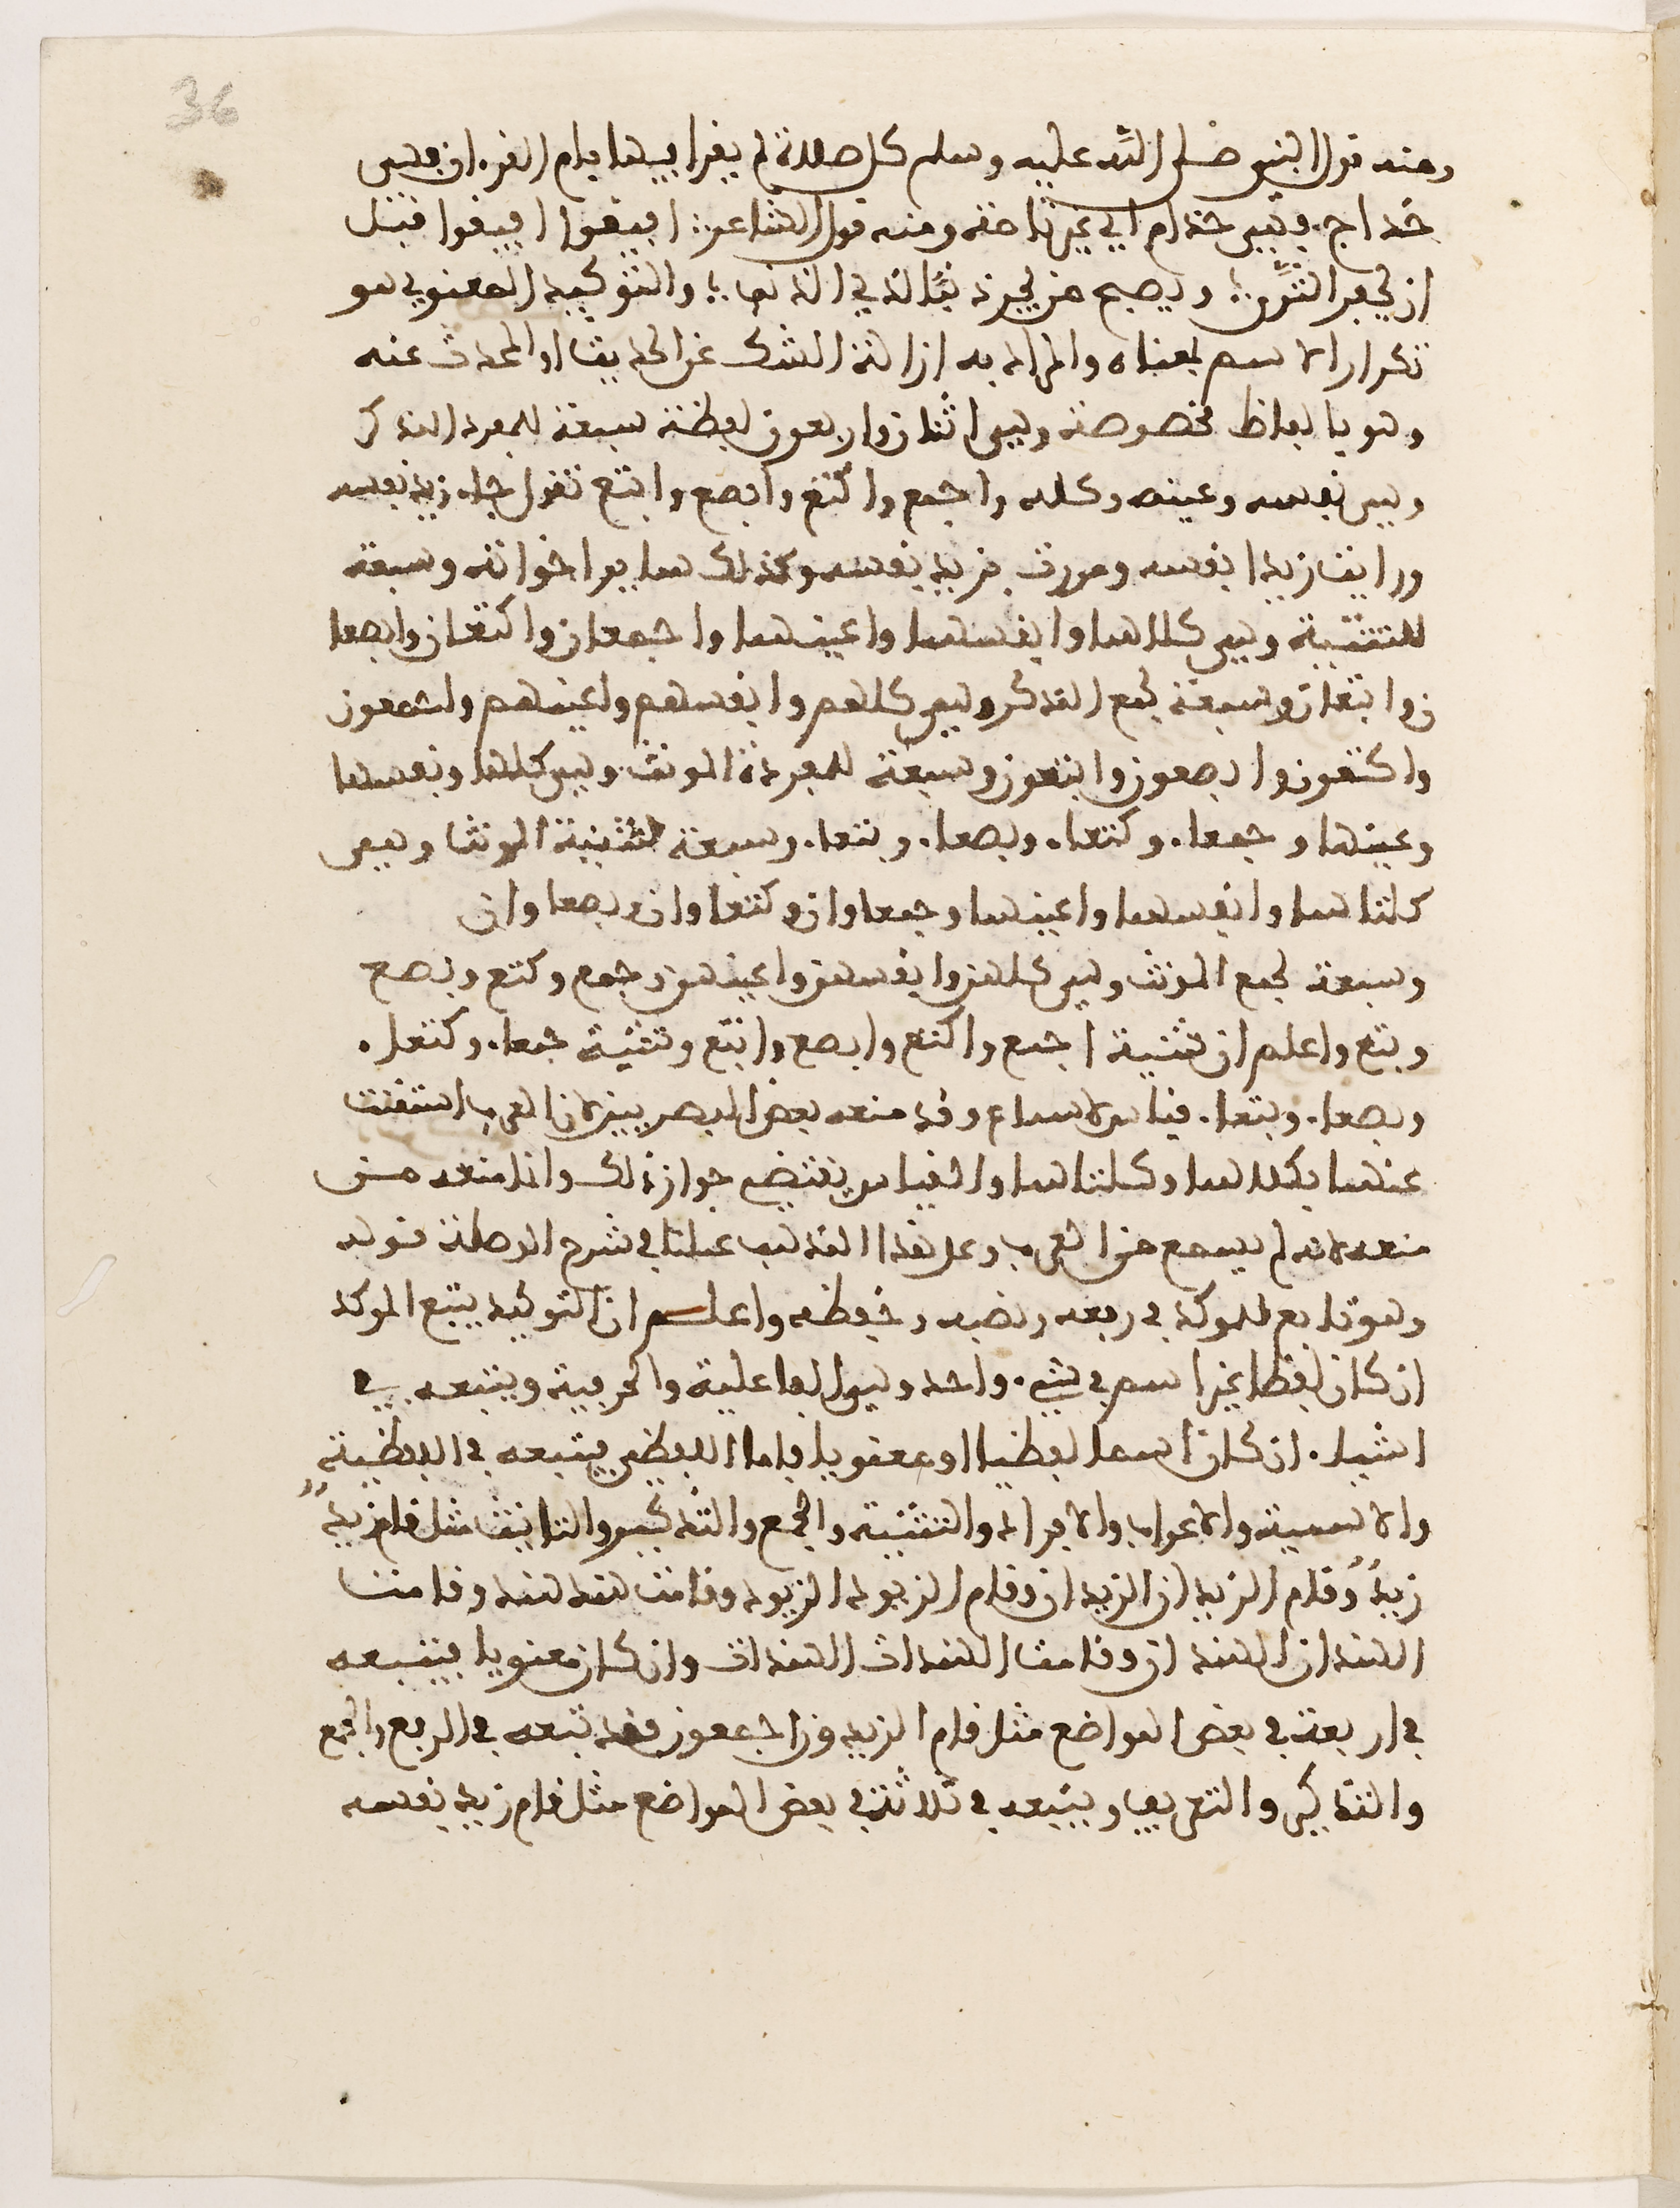 36
ومنه قول النبي صلى الله عليه وسلم كل صلاة لم يقرا فيها بام القرءان فهي
خداج فهي خداج اي غير تامة ومنه قول الشاعر افيقوا افيقوا قبل
ان يحفر الثرى ويصبح من لم يجن ذنبا كذي الذنب والتوكيد المعنوي هو
تكرار الاسم بمعناه والمراد به ازالة الشك عن الحديث او المحدث عنه
وهو بالفاظ مخصوصة وهي اثنان واربعون لفظة سبعة للمفرد المذكر
وهي نفسه وعينه وكله واجمع واكتع وابصع وابتع تقول جاء زيد نفسه
ورايت زيدا نفسه ومررت بزيد نفسه وكذلك ساير اخواته وسبعة
للتثنية وهي كلاهما وانفسهما واعينهما واجمعان واكتعان وابصعا
ن وابتعان وسبعة لجمع المذكر وهي كلهم وانفسهم واعينهم واجمعون
واكتعون وابصعون وابتعون وسبعة للمفردة المونث وهي كلها ونفسها
وعينها وجمعاء وكتعاء وبصعاء وبتعاء وسبعة لتثنية المونث وهي
كلتاهما وانفسهما واعينهما وجمعاوان وكتعاوان وبصعاوان
وسبعة لجمع المونث وهي كلهن وانفسهن واعينهن وجمع وكتع وبصع
وبتع واعلم ان تثنية اجمع واكتع وابصع وابتع وتثنية جمعاء وكتعاء
وبصعاء وبتعاء قياس لا سماع وقد منعه بعض البصريين لان العرب استغنت
عنهما بكلاهما وكلتاهما والقياس يقتضي جواز ذلك وانما منعه من
منعه لانه لم يسمع من العرب وعلى هذا المذهب عملنا في شرح الوصلة قوله
وهو تابع للموكد في رفعه ونصبه وخفظه واعلم ان التوكيد يتبع الموكد
ان كان لفظا غير اسم في شيء واحد وهي الفاعلية والحرفية ويتبعه في
اشياء ان كان اسما لفظيا او معنويا فاما اللفظي فيتبعه في اللفظية
والاسمية والاعراب والافراد والتثنية والجمع والتذكير والتانيث مثل قام زيد
زيد وقام الزيدان الزيدان وقام الزيود الزيود وقامت هند هند وقامت
الهندان الهندان وقامت الهندات الهندات وان كان معنويا فيتبعه
في اربعة في بعض المواضع مثل قام الزيدون اجمعون فقد تبعه في الرفع والجمع
والتذكير والتعريف ويتبعه في ثلاثة في بعض المواضع مثل قام زيد نفسه